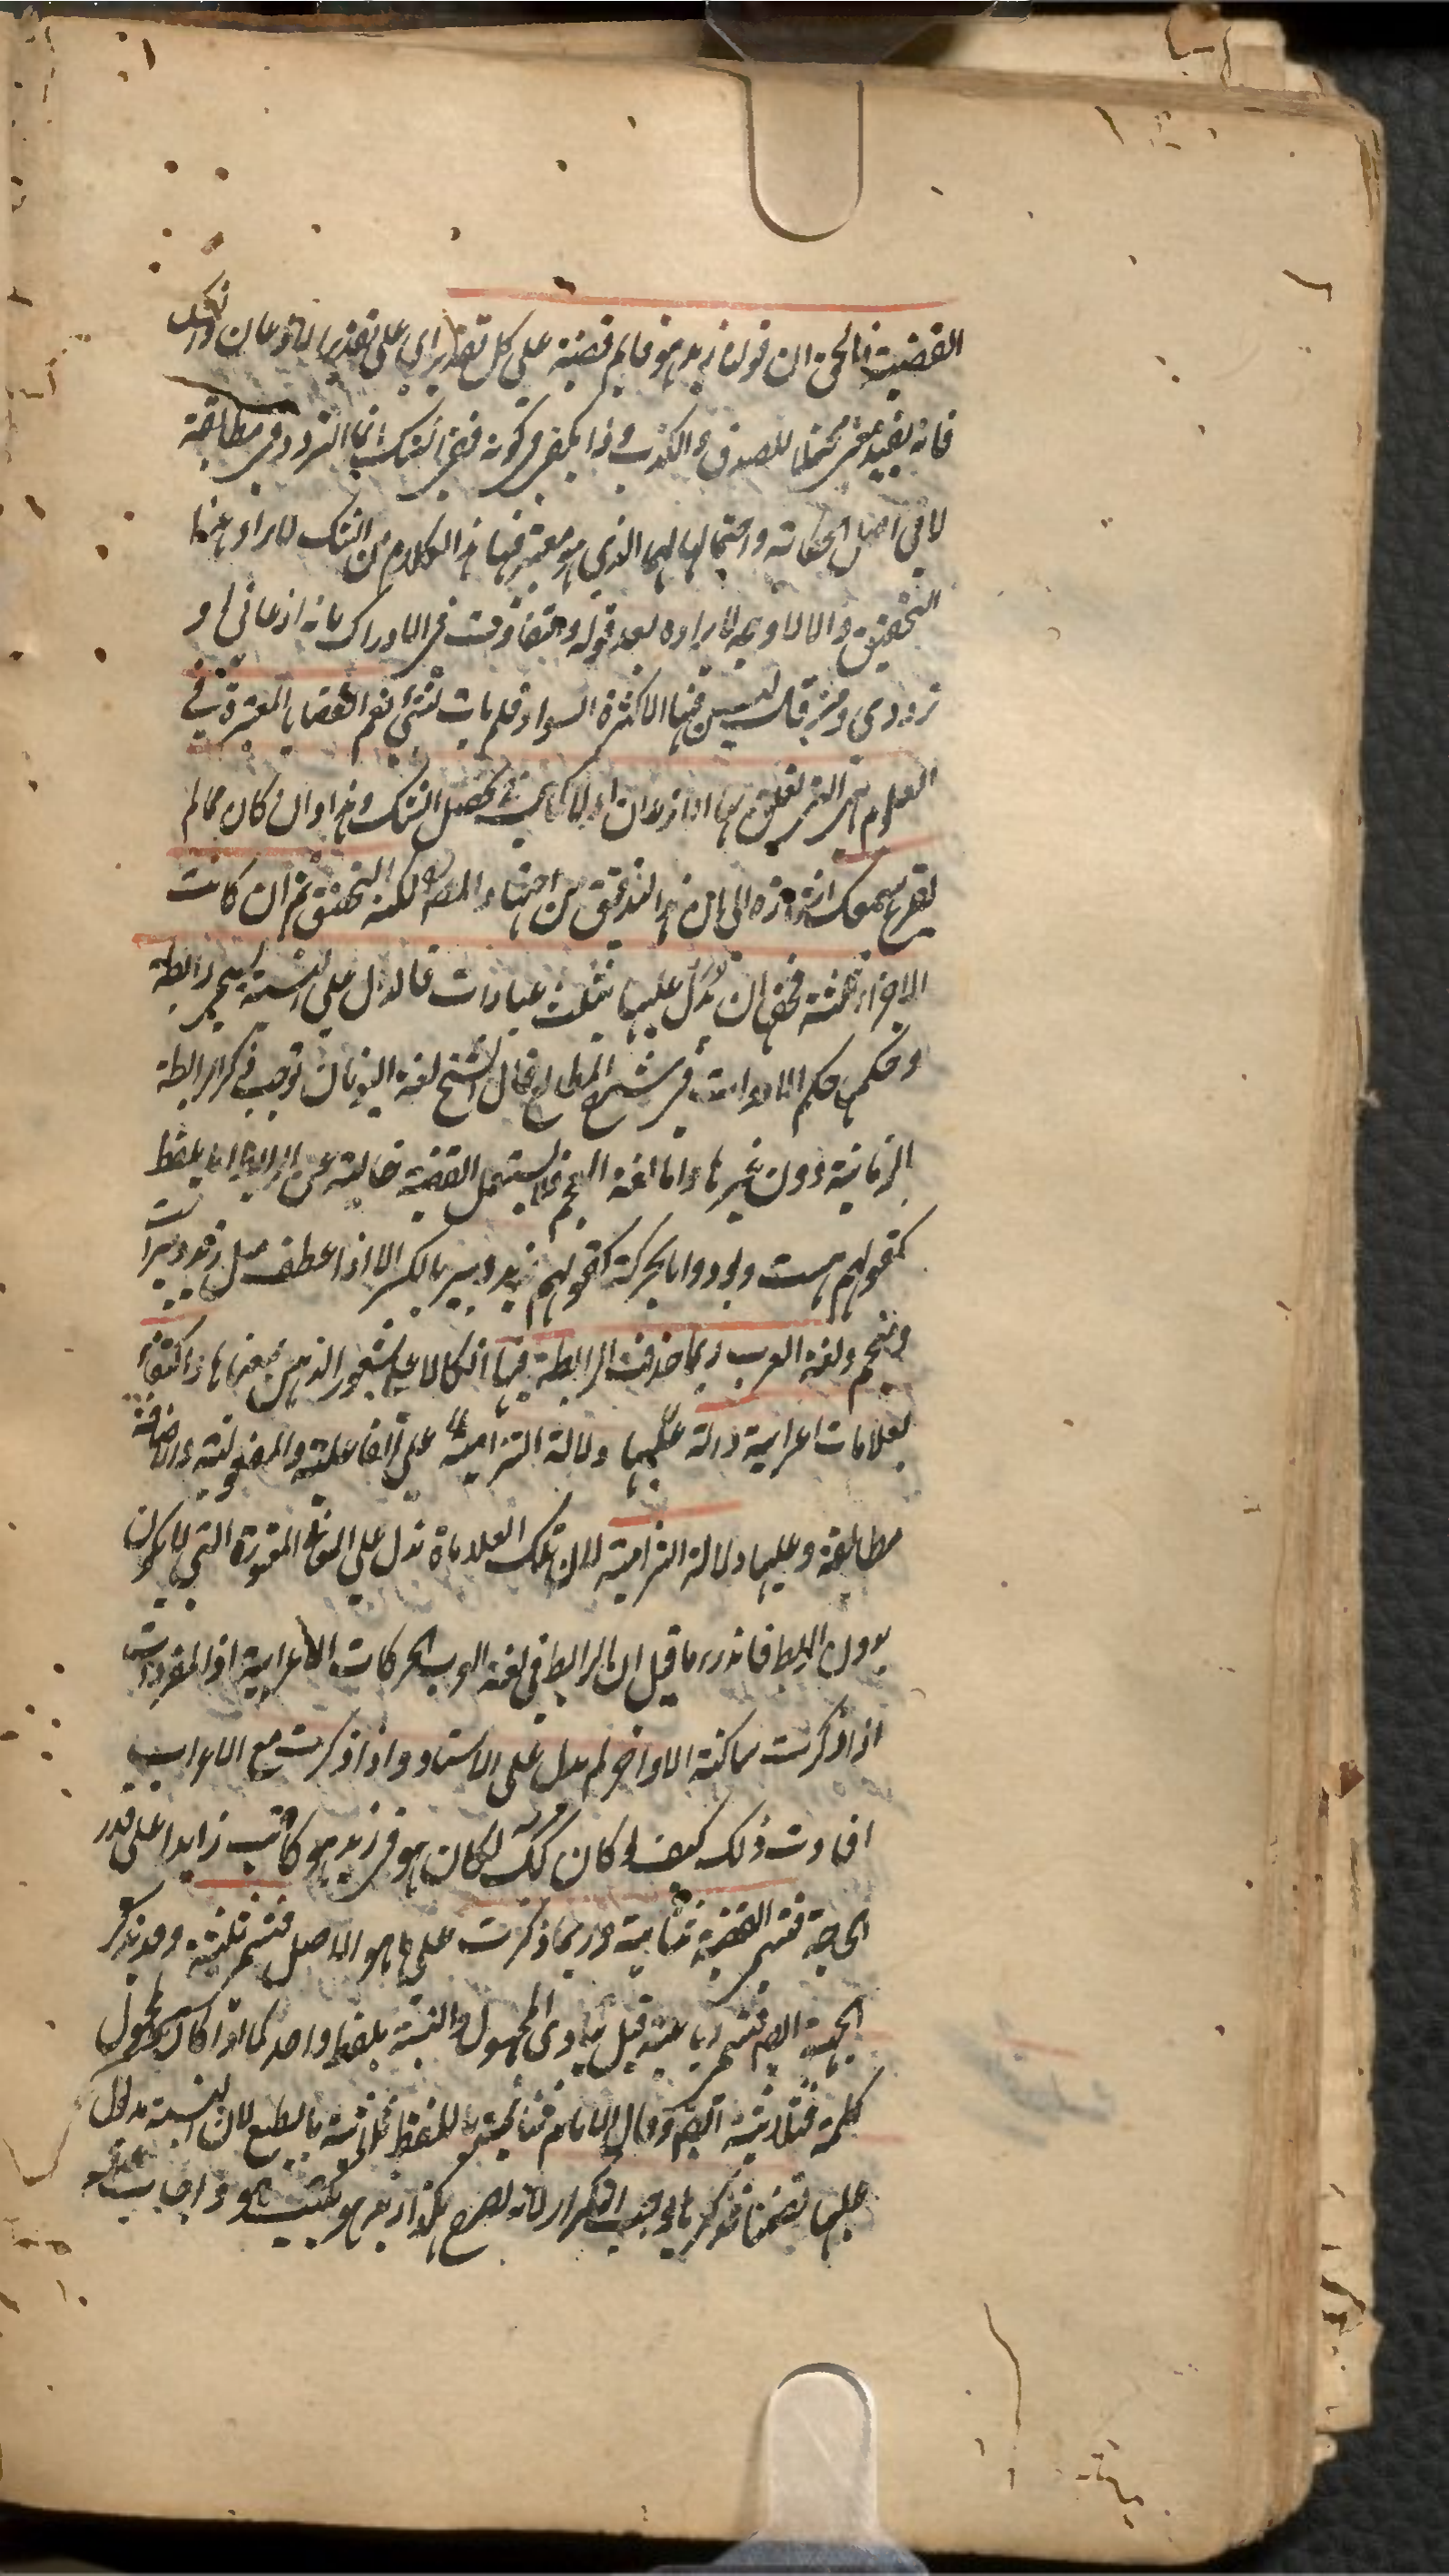 القضية فالحق ان قولنا زيد هو قائم قضية على كل تقدير اي على تقدير الاذعان والشك
فانه يفيد معنى محتملا للصدق والكذب وذا يكفي في كونه ففي الشك انما التردد في مطابقة
لا في اصل الحكاية واحتمالها لهما الذي هو معتبر فيها هذا الكلام من الشك لا يراد عنها
التحقيق والا لا وجه لايراده بعد قوله وتتفاوت في الادراك بانه اذعاني او
ترددي ومن قال ليس فيها الا كثرة السواد فلم يات بشئ نعم القضايا المعتبرة في
العلوم هي التي تعلق بها الاذعان اذ لا كمال في تحصيل الشك وهذا وان كان مما لم
يقرع سمعك لكنه التحقيق ثم ان كانت
الاجزاء ثلثة فحقها ان تدل عليها بثلث عبارات فالدال على النسبة يسمى رابطة
وحكمها حكم الادوات في شرح المطالع قال الشيخ لغة اليونان توجب ذكر الرابطة
الزمانية دون غيرها واما لغة العجم فلا يستعمل القضية خالية عن الرابطة اما بلفظ
كقولهم هست وبود واما بحركة كقولهم زيد دبير بالكسر الا اذا عطف مثل زيد دبير است
ومنجم ولغة العرب ربما حذفت الرابطة فيها اتكالا على شعور الذهن بمعناها واكتفاء
بعلامات اعرابية دالة عليها دلالة التزامية على الفاعلية والمفعولية والاضافة
مطابقة وعليها دلالة التزامية لان تلك العلامات تدل على المعاني المعتورة التي لا تكون
بدون الربط فاندرء ما قيل ان الرابط في لغة العرب الحركات الاعرابية اذ المفردات
اذا ذكرت ساكنة الاواخر لم تدل على الاسناد واذا ذكرت مع الاعراب
افادت ذلك كيف ولو كان كك لكان هو في زيد هو كاتب زايدا على قدر
الحاجة فتسمى القضية ثنائية وربما ذكرت على ما هو الاصل فتسمى ثلثية وقد يذكر
الجهة ايضا فتسمى رباعية قيل يؤدى المحمول والنسبة بلفظ واحد كما اذا كان المحمول
كلمة فثلاثية ايضا وقال الامام فثنائية باللفظ ثلاثية بالطبع لان النسبة مدلول
عليها تضمنا فذكرها يوجب التكرار